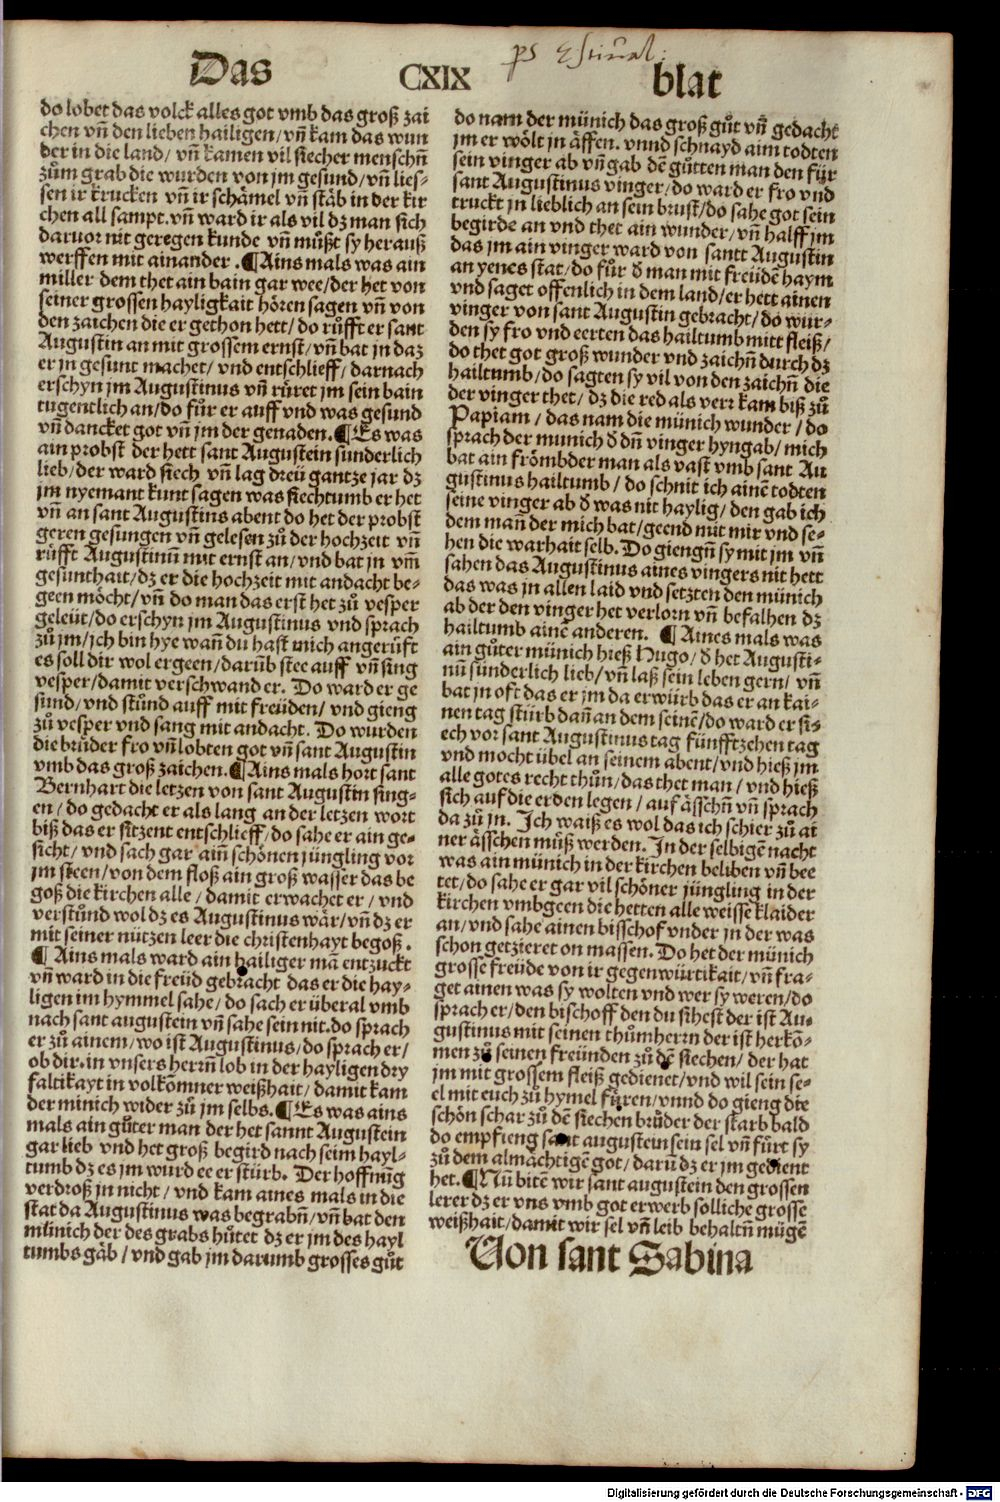 Das CXIX blat
do lobet das volck alles got vmb das groß zai
chen vn̄ den lieben hailigen/ vn̄ kam das wun
der in die land/ vn̄ kamen vil siecher menschn̄
zům grab die wurden von jm gesund/ vn̄ lies-
sen ir krucken vn̄ ir schämel vn̄ stäb in der kir
chen all sampt. vn̄ ward ir als vil dz man sich
daruor nit geregen kunde vn̄ můßt sy herauß
werffen mit ainander. ¶Ains mals was ain
miller dem thet ain bain gar wee/ der het von
seiner grossen hayligkait hören sagen vn̄ von
den zaichen die er gethon hett/ do růfft er sant
Augustin an mit grossem ernst/ vn̄ bat jn daz
er jn gesunt machet/ vnd entschlieff/ darnach
erschyn jm Augustinus vn̄ růret jm sein bain
tugentlich an/ do fůr er auff vnd was gesund
vn̄ dancket got vn̄ jm der genaden. ¶Es was
ain probst der hett sant Augustein sunderlich
lieb/ der ward siech vn̄ lag dreü gantze jar dz
jm nyemant kunt sagen was siechtumb er het
vn̄ an sant Augustins abent do het der probst
geren gesungen vn̄ gelesen zů der hochzeit vn̄
růfft Augustinū mit ernst an/ vnd bat jn vm̄
gesunthait/ dz er die hochzeit mit andacht be-
geen möcht/ vn̄ do man das erst het zů vesper
geleüt/ do erschyn jm Augustinus vnd sprach
zů jm/ ich bin hye wan̄ du hast mich angerüfft
es soll dir wol ergeen/ darūb stee auff vn̄ sing
vesper/ damit verschwand er. Do ward er ge
sund/ vnd stůnd auff mit freüden/ vnd gieng
zů vesper vnd sang mit andacht. Do wurden
die brüder fro vn̄ lobten got vn̄ sant Augustin
vmb das groß zaichen. ¶Ains mals hort sant
Bernhart die letzen von sant Augustin sing-
en/ do gedacht er als lang an der letzen wort
biß das er sitzent entschlieff/ do sahe er ain ge-
sicht/ vnd sach gar ain̄ schönen jüngling vor
jm steen/ von dem floß ain groß wasser das be
goß die kirchen alle/ damit erwachet er/ vnd
verstůnd wol dz es Augustinus wär/ vn̄ dz er
mit seiner nützen leer die christenhayt begoß.
¶ Ains mals ward ain hailiger mā entzuckt
vn̄ ward in die freüd gebracht das er die hay-
ligen im hymmel sahe/ do sach er überal vmb
nach sant augustein vn̄ sahe sein nit. do sprach
er zů ainem/ wo ist Augustinus/ do sprach er/
ob dir. in vnsers herrn̄ lob in der hayligen dry
faltikayt in volkōmner weißhait/ damit kam
der minich wider zů jm selbs. ¶Es was ains
mals ain gůter man der het sannt Augustein
gar lieb vnd het groß begird nach seim hayl-
tumb dz es jm wurd ee er stürb. Der hoffnūg
verdroß jn nicht/ vnd kam aines mals in die
stat da Augustinus was begrabn̄/ vn̄ bat den
münich der des grabs hůtet dz er jm des hayl
tumbs gäb/ vnd gab jm darumb grosses gůt
do nam der münich das groß gůt vn̄ gedacht
jm er wölt jn äffen. vnnd schnayd aim todten
sein vinger ab vn̄ gab dē gůtten man den für
sant Augustinus vinger/ do ward er fro vnd
truckt jn lieblich an sein brust/ do sahe got sein
begirde an vnd thet ain wunder/ vn̄ halff jm
das jm ain vinger ward von santt Augustin
an yenes stat/ do fůr d man mit freüdē haym
vnd saget offenlich in dem land/ er hett ainen
vinger von sant Augustin gebracht/ do wur-
den sy fro vnd eerten das hailtumb mitt fleiß/
do thet got groß wunder vnd zaichn̄ durch dz
hailtumb/ do sagten sy vil von den zaichn̄ die
der vinger thet/ dz die red als verr kam biß zů
Papiam/ das nam die münich wunder/ do
sprach der munich d dn̄ vinger hyngab/ mich
bat ain frömbder man als vast vmb sant Au
gustinus hailtumb/ do schnit ich ainē todten
seine vinger ab d was nit haylig/ den gab ich
dem man̄ der mich bat/ geend mit mir vnd se-
hen die warhait selb. Do giengn̄ sy mit jm vn̄
sahen das Augustinus aines vingers nit hett
das was jn allen laid vnd setzten den münich
ab der den vinger het verlorn vn̄ befalhen dz
hailtumb ainē anderen. ¶ Aines mals was
ain gůter münich hieß Hugo/ d het Augusti-
nū sunderlich lieb/ vn̄ laß sein leben gern/ vn̄
bat jn oft das er jm da erwürb das er an kai-
nen tag stürb dan̄ an dem seinē/ do ward er si-
ech vor sant Augustinus tag fünfftzehen tag
vnd mocht übel an seinem abent/ vnd hieß jm
alle gotes recht thůn/ das thet man/ vnd hieß
sich auf die erden legen/ auf ässchn̄ vn̄ sprach
da zů jn. Ich waiß es wol das ich schier zů ai
ner ässchen můß werden. In der selbigē nacht
was ain münich in der kirchen beliben vn̄ bee
tet/ do sahe er gar vil schöner jüngling in der
kirchen vmbgeen die hetten alle weisse klaider
an/ vnd sahe ainen bischof vnder in der was
schon getzieret on massen. Do het der münich
grosse freüde von ir gegenwürtikait/ vn̄ fra-
get ainen was sy wolten vnd wer sy weren/ do
sprach er/ den bischoff den du sihest der ist Au-
gustinus mit seinen thůmhern der ist herkō-
men zů seinen freünden zů dē siechen/ der hat
jm mit grossem fleiß gedienet/ vnd wil sein se-
el mit euch zů hymel füren/ vnnd do gieng die
schön schar zů dē siechen brüder der starb bald
do empfieng sant augustein sein sel vn̄ fürt sy
zů dem almächtigē got/ darū dz er jm gedient
het. ¶Nū bitē wir sant augustein den grossen
lerer dz er vns vmb got erwerb solliche grosse
weißhait/ damit wir sel vn̄ leib behaltn̄ mügē
Uon sant Sabina
Digitalisierung gefördert durch die Deutsche Forschungsgemeinschaft - DFG